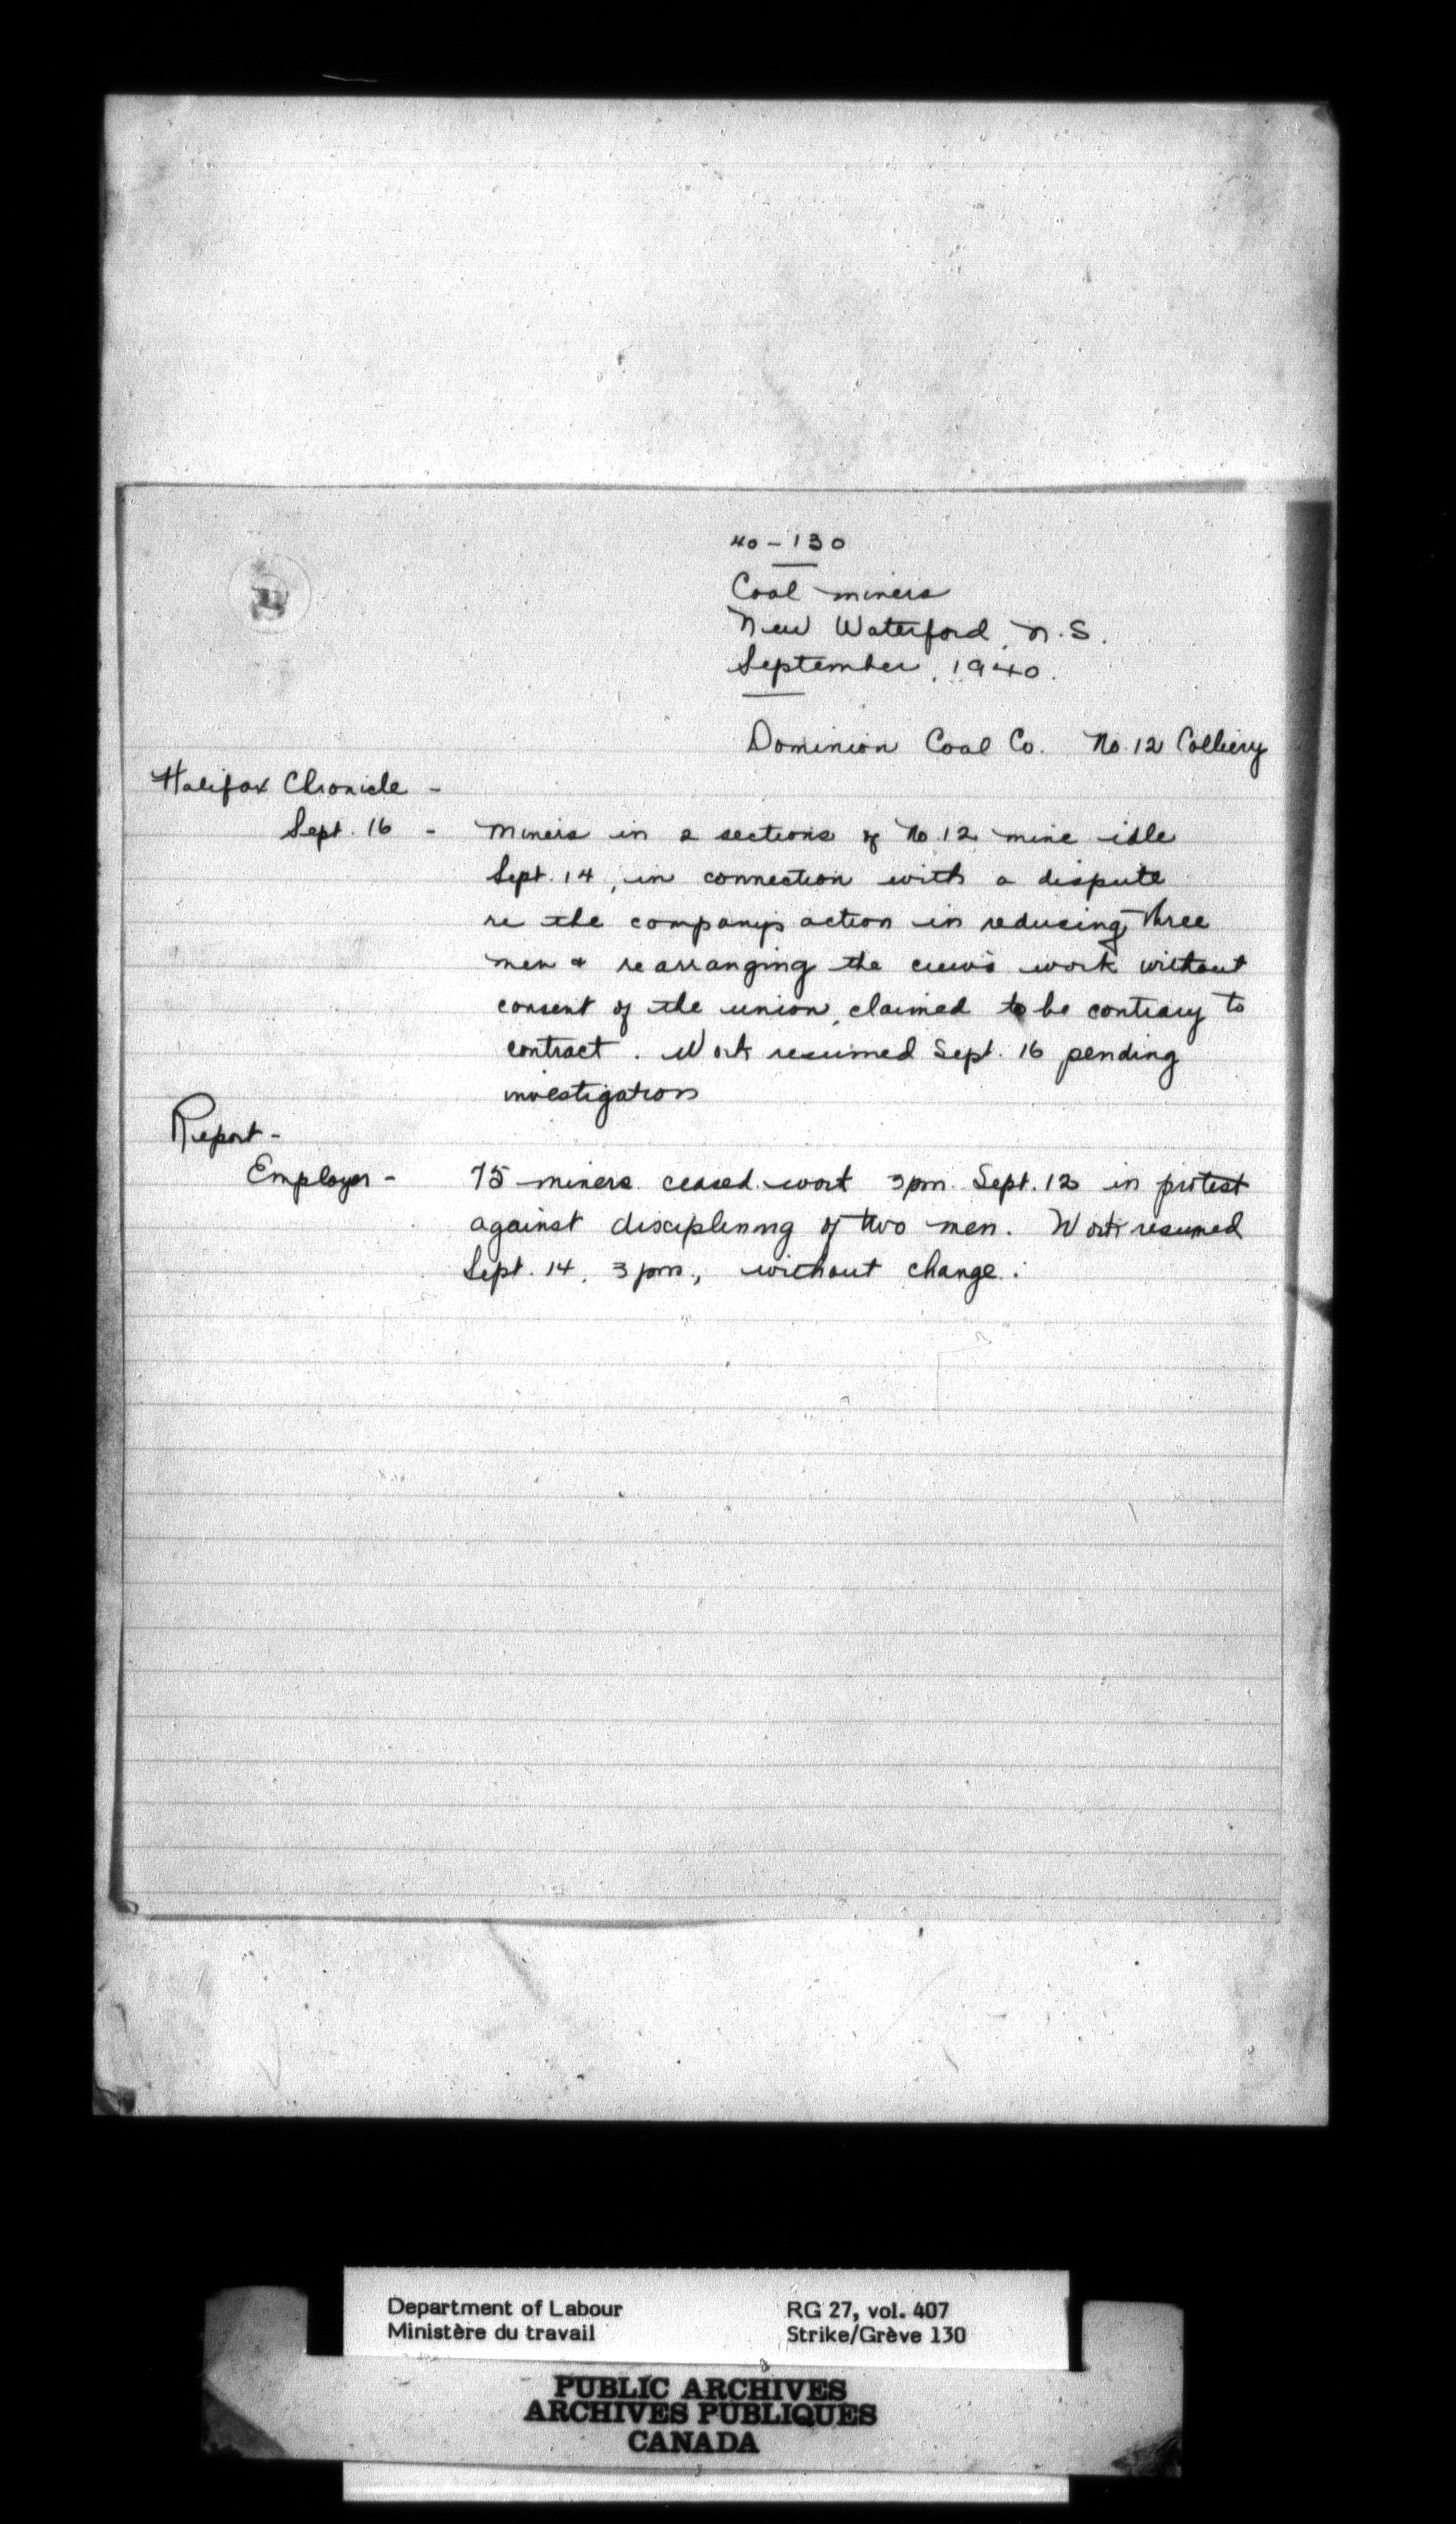 40-130
Coal miners
New Waterford, N.S.
September, 1940.
Dominion Coal Co. No. 12 Colliery
Halifax Chronicle -
Sept. 16 - Miners in 2 sections of No. 12 mine idle
Sept. 14, in connection with a dispute
re the company's action in reducing three
men & rearranging the crew's work without
consent of the union, claimed to be contrary to
contract. Work resumed Sept. 16 pending
investigation
Report -
Employer - 75 miners ceased work 3pm Sept. 12 in protest
against disciplining of two men. Work resumed
Sept. 14, 3 pm., without change.
Department of Labour
Ministère du travail
RG 27, vol. 407
Strike/Grève 130
PUBLIC ARCHIVES
ARCHIVES PUBLIQUES
CANADA